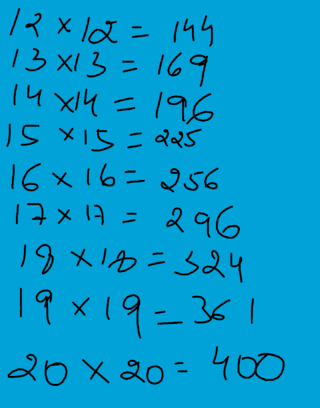 12 × 12 = 144
13 × 13 = 169
14 × 14 = 196
15 × 15 = 225
16 × 16 = 256
17 × 17 = 296
18 × 18 = 324
19 × 19 = 361
20 × 20 = 400